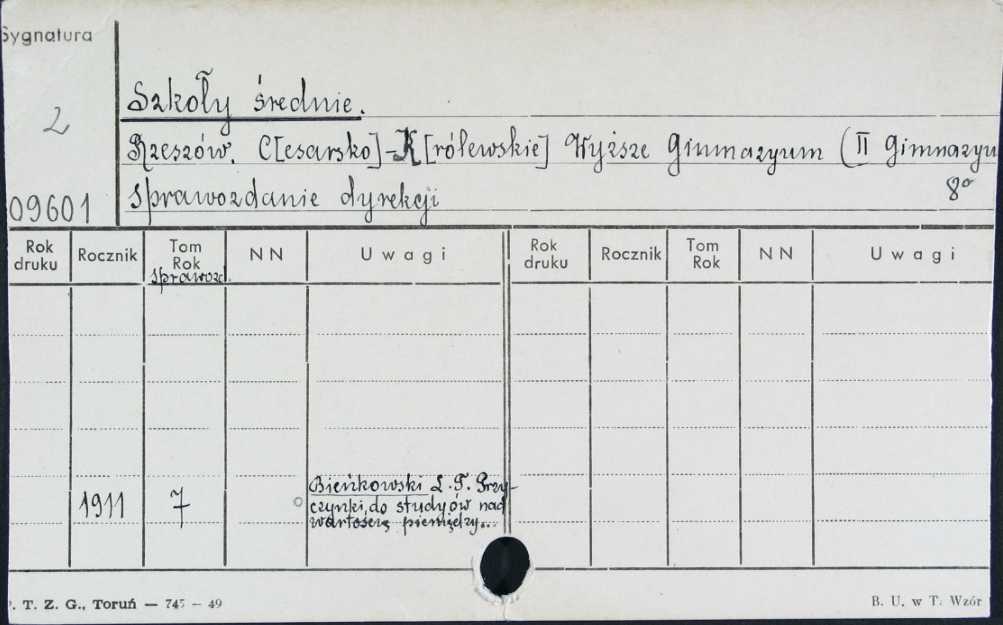 Sygnatura
2
09601
Szkoły średnie.
Rzeszów. C[esarsko]-K[rólewskie] Wyższe Gimnazyum (II Gimnazyu
Sprawozdanie dyrekcji 8°
Rok druku Rocznik Tom Rok NN Uwagi Rok druku Rocznik Tom Rok NN Uwagi
sprawozd.
1911 7 Bieńkowski L. T. Przy-
czynki do studyów nad
wartością pieniędzy...
. T. Z. G., Toruń — 745 — 49 B. U. w T. Wzór